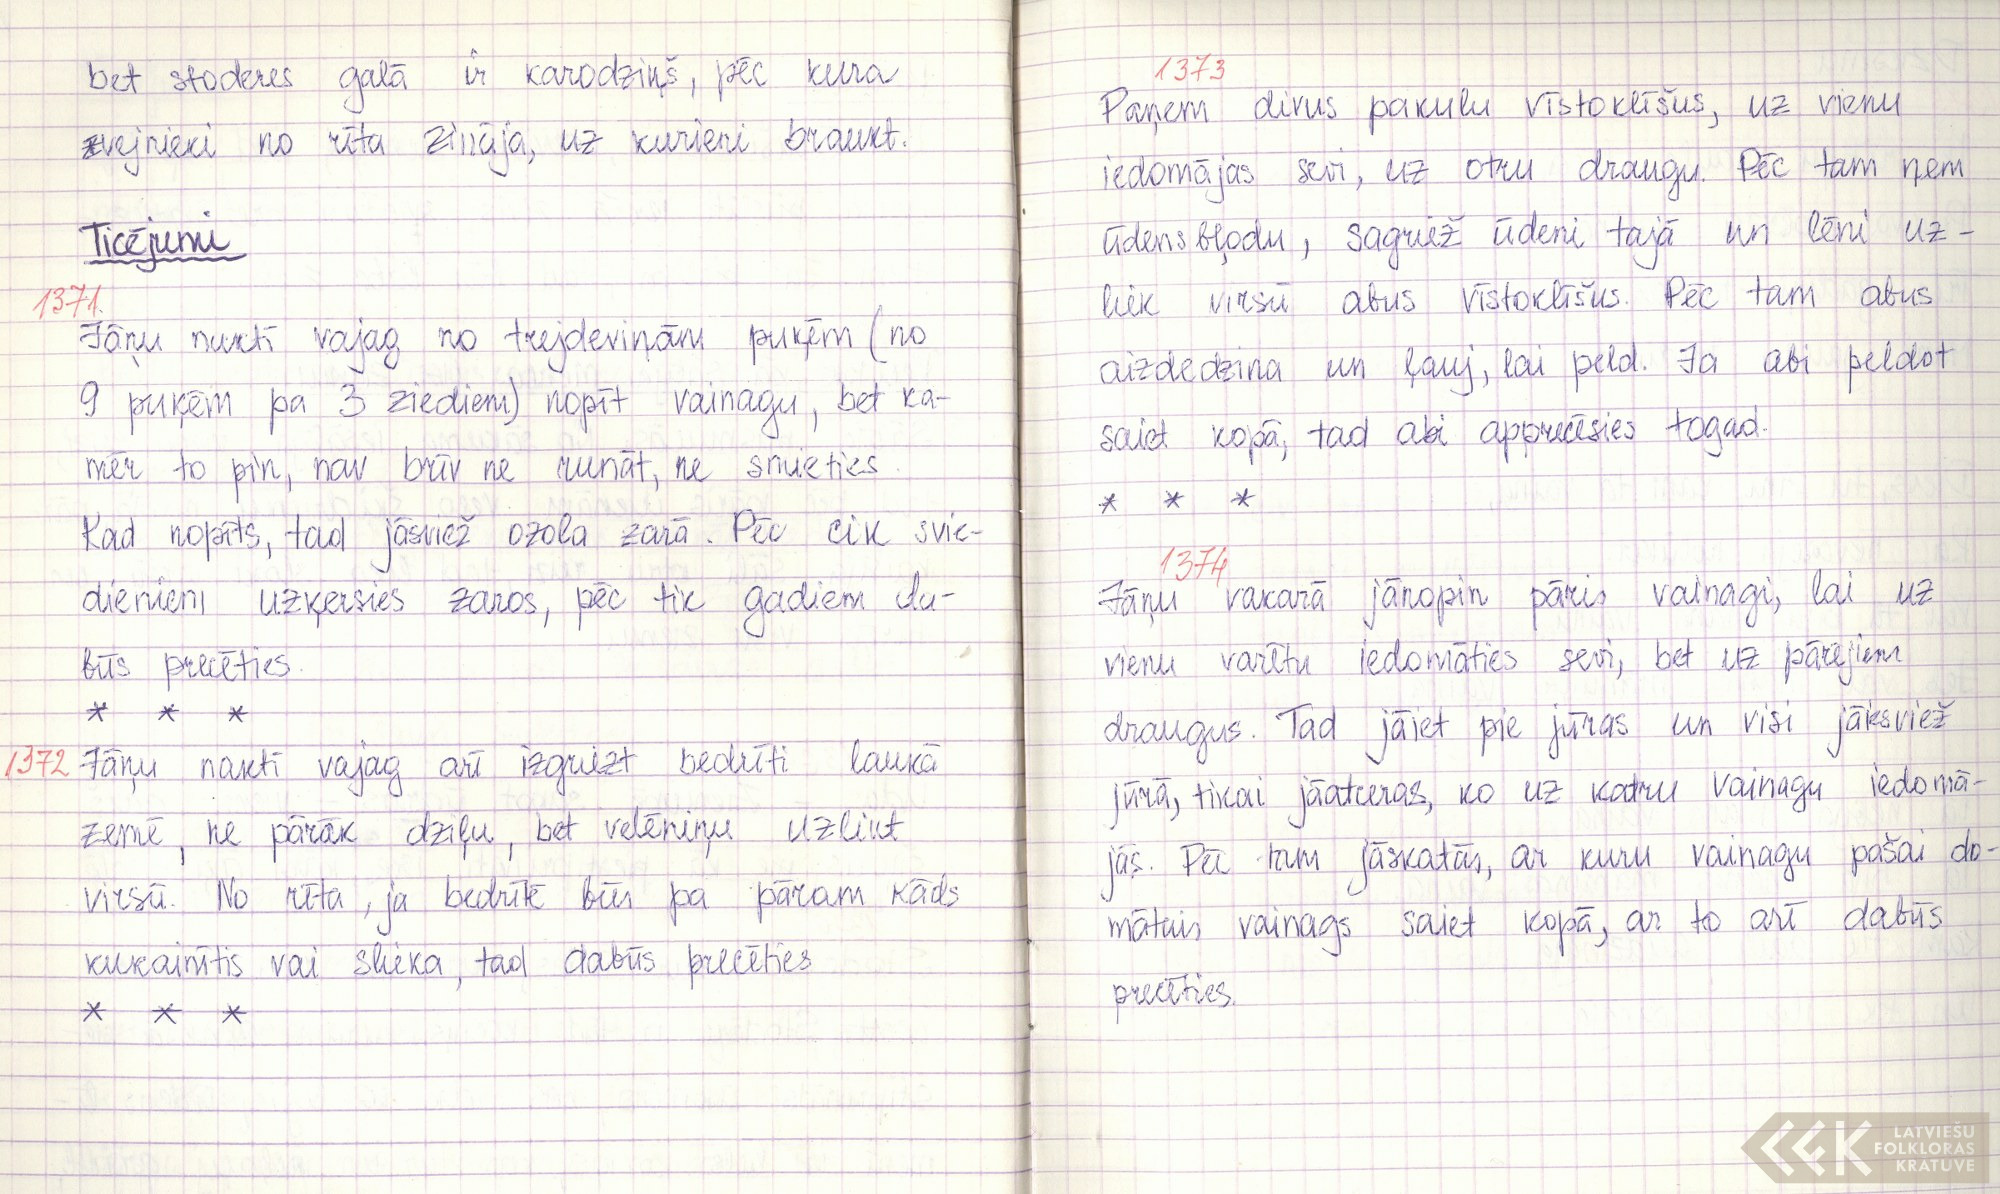 bet stoderes galā ir karodziņš, pēc kura
zvejnieki no rīta zināja, uz kurieni braukt.
Ticējumi
1371.
Jāņu naktī vajag no trejdeviņām puķēm (no
9 puķēm pa 3 ziediem) nopīt vainagu, bet ka-
mēr to pin, nav brīv ne runāt, ne smieties.
Kad nopīts, tad jāsviež ozola zarā. Pēc cik svie-
dieniem uzķersies zaros, pēc tik gadiem da-
būs precēties.
* * *
1372 Jāņu naktī vajag arī izgriezt bedrīti laukā
zemē, ne pārāk dziļu, bet velēniņu uzlikt
virsū. No rīta, ja bedrītē būs pa pāram kāds
kukainītis vai slieka, tad dabūs precēties
* * *
1373
Paņem divus pakulu vīstoklīšus, uz vienu
iedomājas sevi, uz otru draugu. Pēc tam ņem
ūdensbļodu, sagriež ūdeni tajā un lēni uz-
liek virsū abus vīstoklīšus. Pēc tam abus
aizdedzina un ļauj, lai peld. Ja abi peldot
saiet kopā, tad abi apprecēsies togad.
* * *
1374
Jāņu vakarā jānopin pāris vainagi, lai uz
vienu varētu iedomāties sevi, bet uz pārējiem
draugus. Tad jāiet pie jūras un visi jāiesviež
jūrā, tikai jāatceras, ko uz katru vainagu iedomā-
jās. Pēc tam jāskatās, ar kuru vainagu pašai do-
mātais vainags saiet kopā, ar to arī dabūs
precēties.
LATVIEŠU
FOLKLORAS
KRĀTUVE